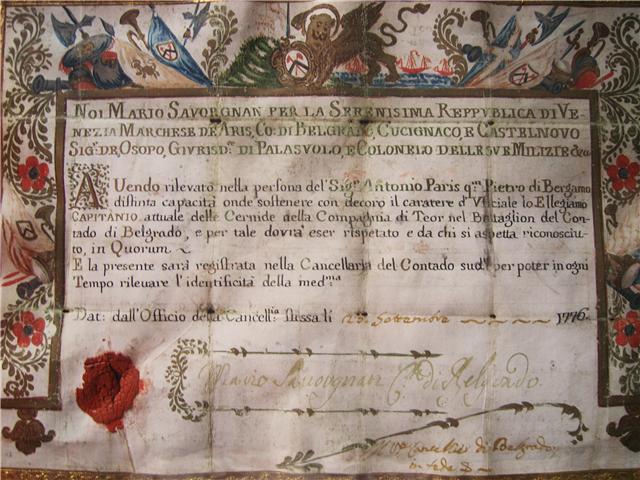 NOI MARIO SAVORGNAN PER LA SERENISIMA REPPVBLICA DI VE-
NEZIA MARCHESE DE ARIS, Co: DI BELGRADO, CUCIGNACO, E CASTELNOVO
SIGr. DR. OSOPO, GIVRISDn. DI PALASVOLO, E COLONELO DELLE SVE MILIZIE &c.
AUendo rilevato nella persona del Sigr. Antonio Paris qm. Pietro di Bergamo
distinta capacità onde sostenere con decoro il caratere d'Vficiale lo Ellegiamo
CAPITANIO attuale delle Cernide nella Compagnia di Teor nel Battaglion del Con-
tado di Belgrado, e per tale dovrà eser rispetato e da chi si aspetta riconosciu-
to, in Quorum
E la presente sarà registrata nella Cancellaria del Contado sudo. per poter in ogni
Tempo rilevare l'identificità della medma.
Dat: dall'Officio della Cancellia. stessa lì 23 Settembre 1776.
Mario Savorgnan Co. di Belgrado
di Belgrado
in fede